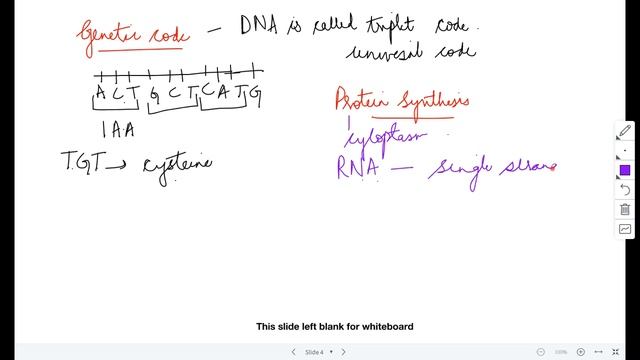 Genetic code — DNA is called triplet code.
universal code
A C T G C T C A T G
1 AA
TGT → cysteine
Protein Synthesis
cytoplasm
RNA — single stran
This slide left blank for whiteboard
Slide 4
100%